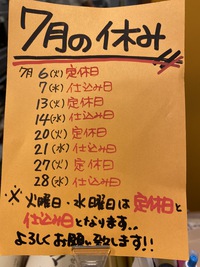 7月の休み!!
7月 6(火) 定休日
7(水) 仕込み日
13(火) 定休日
14(水) 仕込み日
20(火) 定休日
21(水) 仕込み日
27(火) 定休日
28(水) 仕込み日
※火曜日・水曜日は定休日と
仕込み日となります。
よろしくお願い致します!!